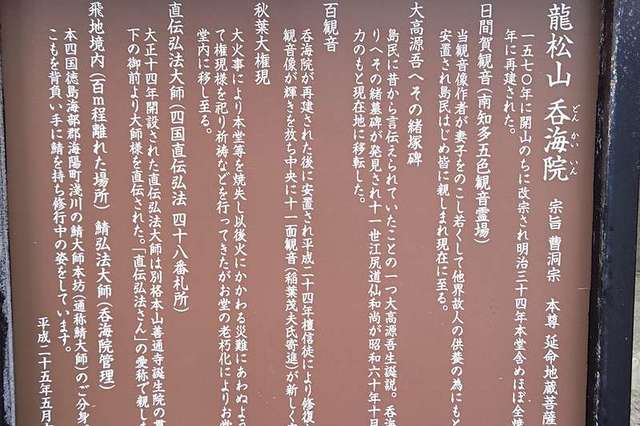 龍松山 呑海院 宗旨 曹洞宗 本尊 延命地蔵菩薩
どん かい いん
一五七〇年に開山ののちに改宗され明治三十四年本堂含めほぼ全焼
年に再建された。
日間賀観音(南知多五色観音霊場)
当観音像作者が妻子をのこし若くして他界故人の供養の為にもと
安置され島民はじめ皆に親しまれ現在に至る。
大高源吾へその緒塚碑
島民に昔から言伝えられていたことの一つ大高源吾生誕説。呑海
りへその緒墓碑が発見され十一世江尻道仙和尚が昭和六十年十月
力のもと現在地に移転した。
百観音
呑海院が再建された後に安置され平成二十四年檀信徒により修復
観音像が輝きを放ち中央に十一面観音(稲葉茂夫氏寄進)が新しく
秋葉大権現
大火事により本堂等を焼失し以後火にかかわる災難にあわぬよう
て権現様を祀り祈祷などを行ってきたがお堂の老朽化によりお堂
堂内に移し至る。
直伝弘法大師(四国直伝弘法 四十八番札所)
大正十四年開設された直伝弘法大師は別格本山善通寺誕生院の貫
下の御前より大師様を直伝された。「直伝弘法さん」の愛称で親し
飛地境内(百m程離れた場所) 鯖弘法大師(呑海院管理)
本四国徳島海部郡海陽町浅川の鯖大師本坊(通称鯖大師)のご分身
こもを背負い手に鯖を持ち修行中の姿をしています。
平成二十五年五月